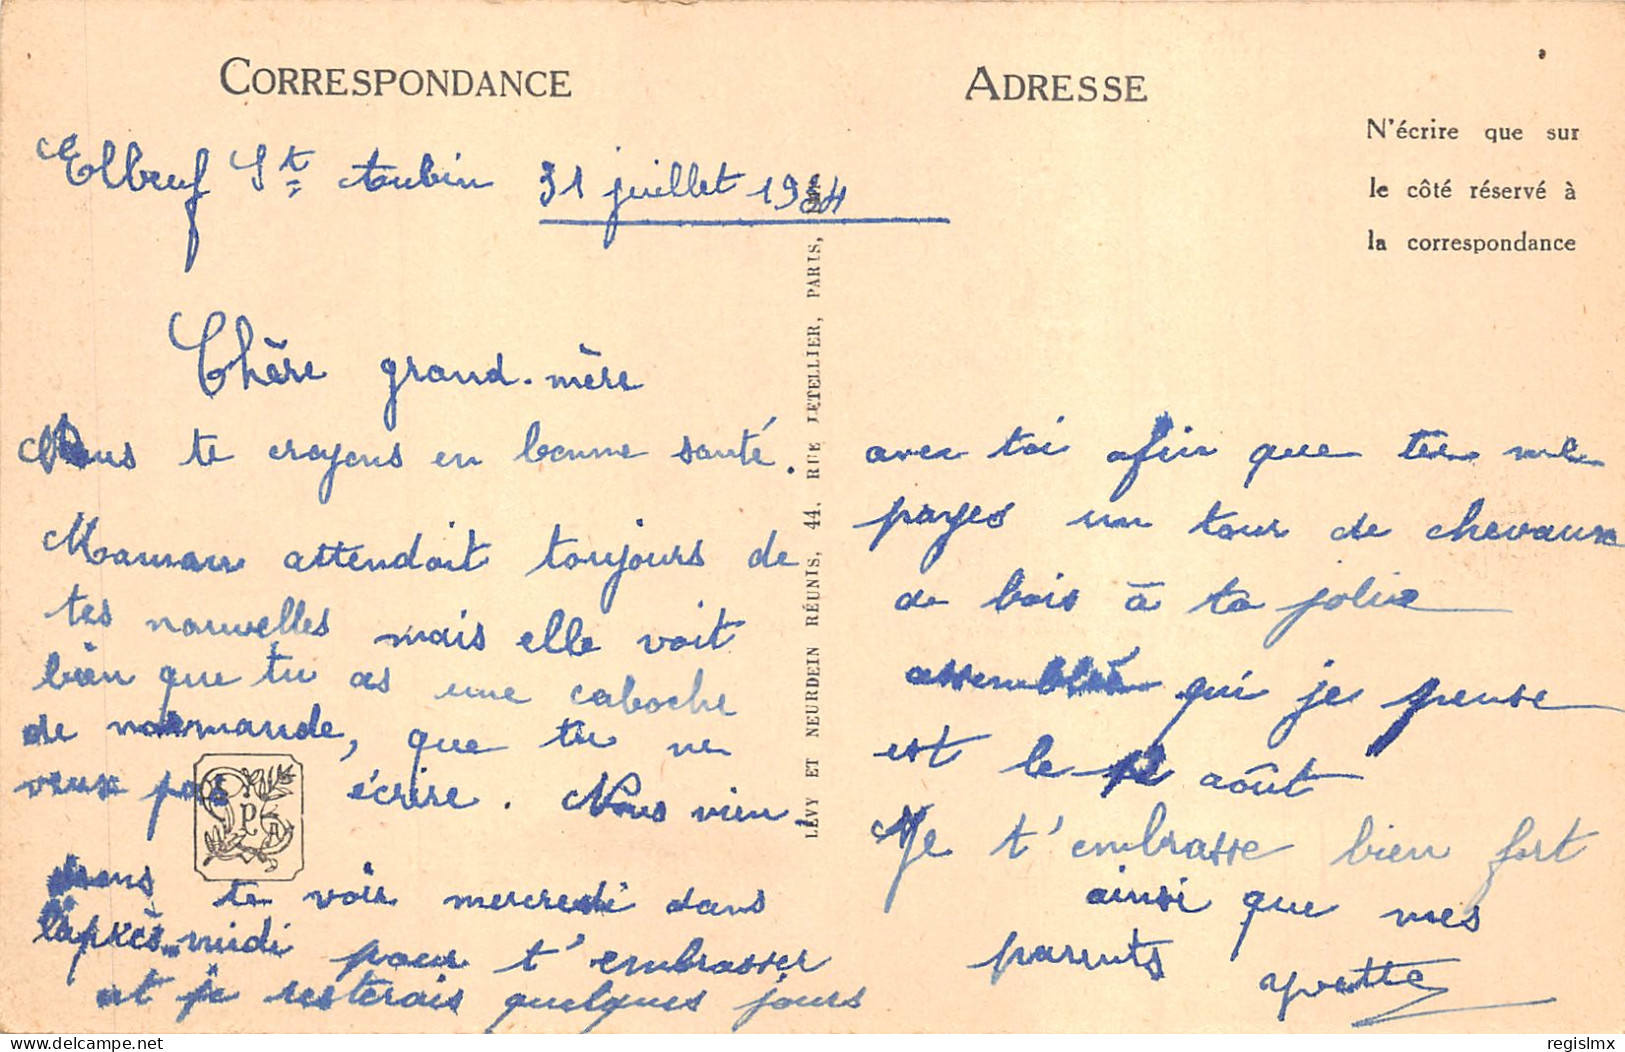 CORRESPONDANCE
ADRESSE
N'écrire que sur
le côté réservé à
la correspondance
Elbeuf St Aubin 31 juillet 19
Chère grand-mère
Nous te croyons en bonne santé.
Maman attendait toujours de
tes nouvelles mais elle voit
bien que tu as une caboche
de normande, que tu ne
veux pas écrire. Nous vien-
drons te voir mercredi dans
l'après-midi pour t'embrasser
et je resterais quelques jours
LÉVY ET NEURDEIN RÉUNIS, 44, RUE LETELLIER, PARIS,
avec toi afin que tu me
payes un tour de chevaux
de bois à ta jolie
assemblée qui je pense
est le 12 août
Je t'embrasse bien fort
ainsi que mes
parents Yvette
delcampe.net
regislmx